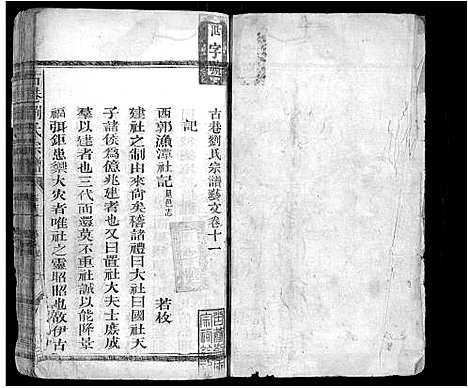 古巷劉氏宗譜藝文卷十一
記
西郭漁潭社記 若枚
建社之制由來尚矣稽諸禮曰大社曰國社天
子諸侯為億兆建者也又曰置社大夫士庶成
羣以建者也三代而還莫不重社誠以能降景
福弭鉅患禦大災者唯社之靈昭昭也故伊古